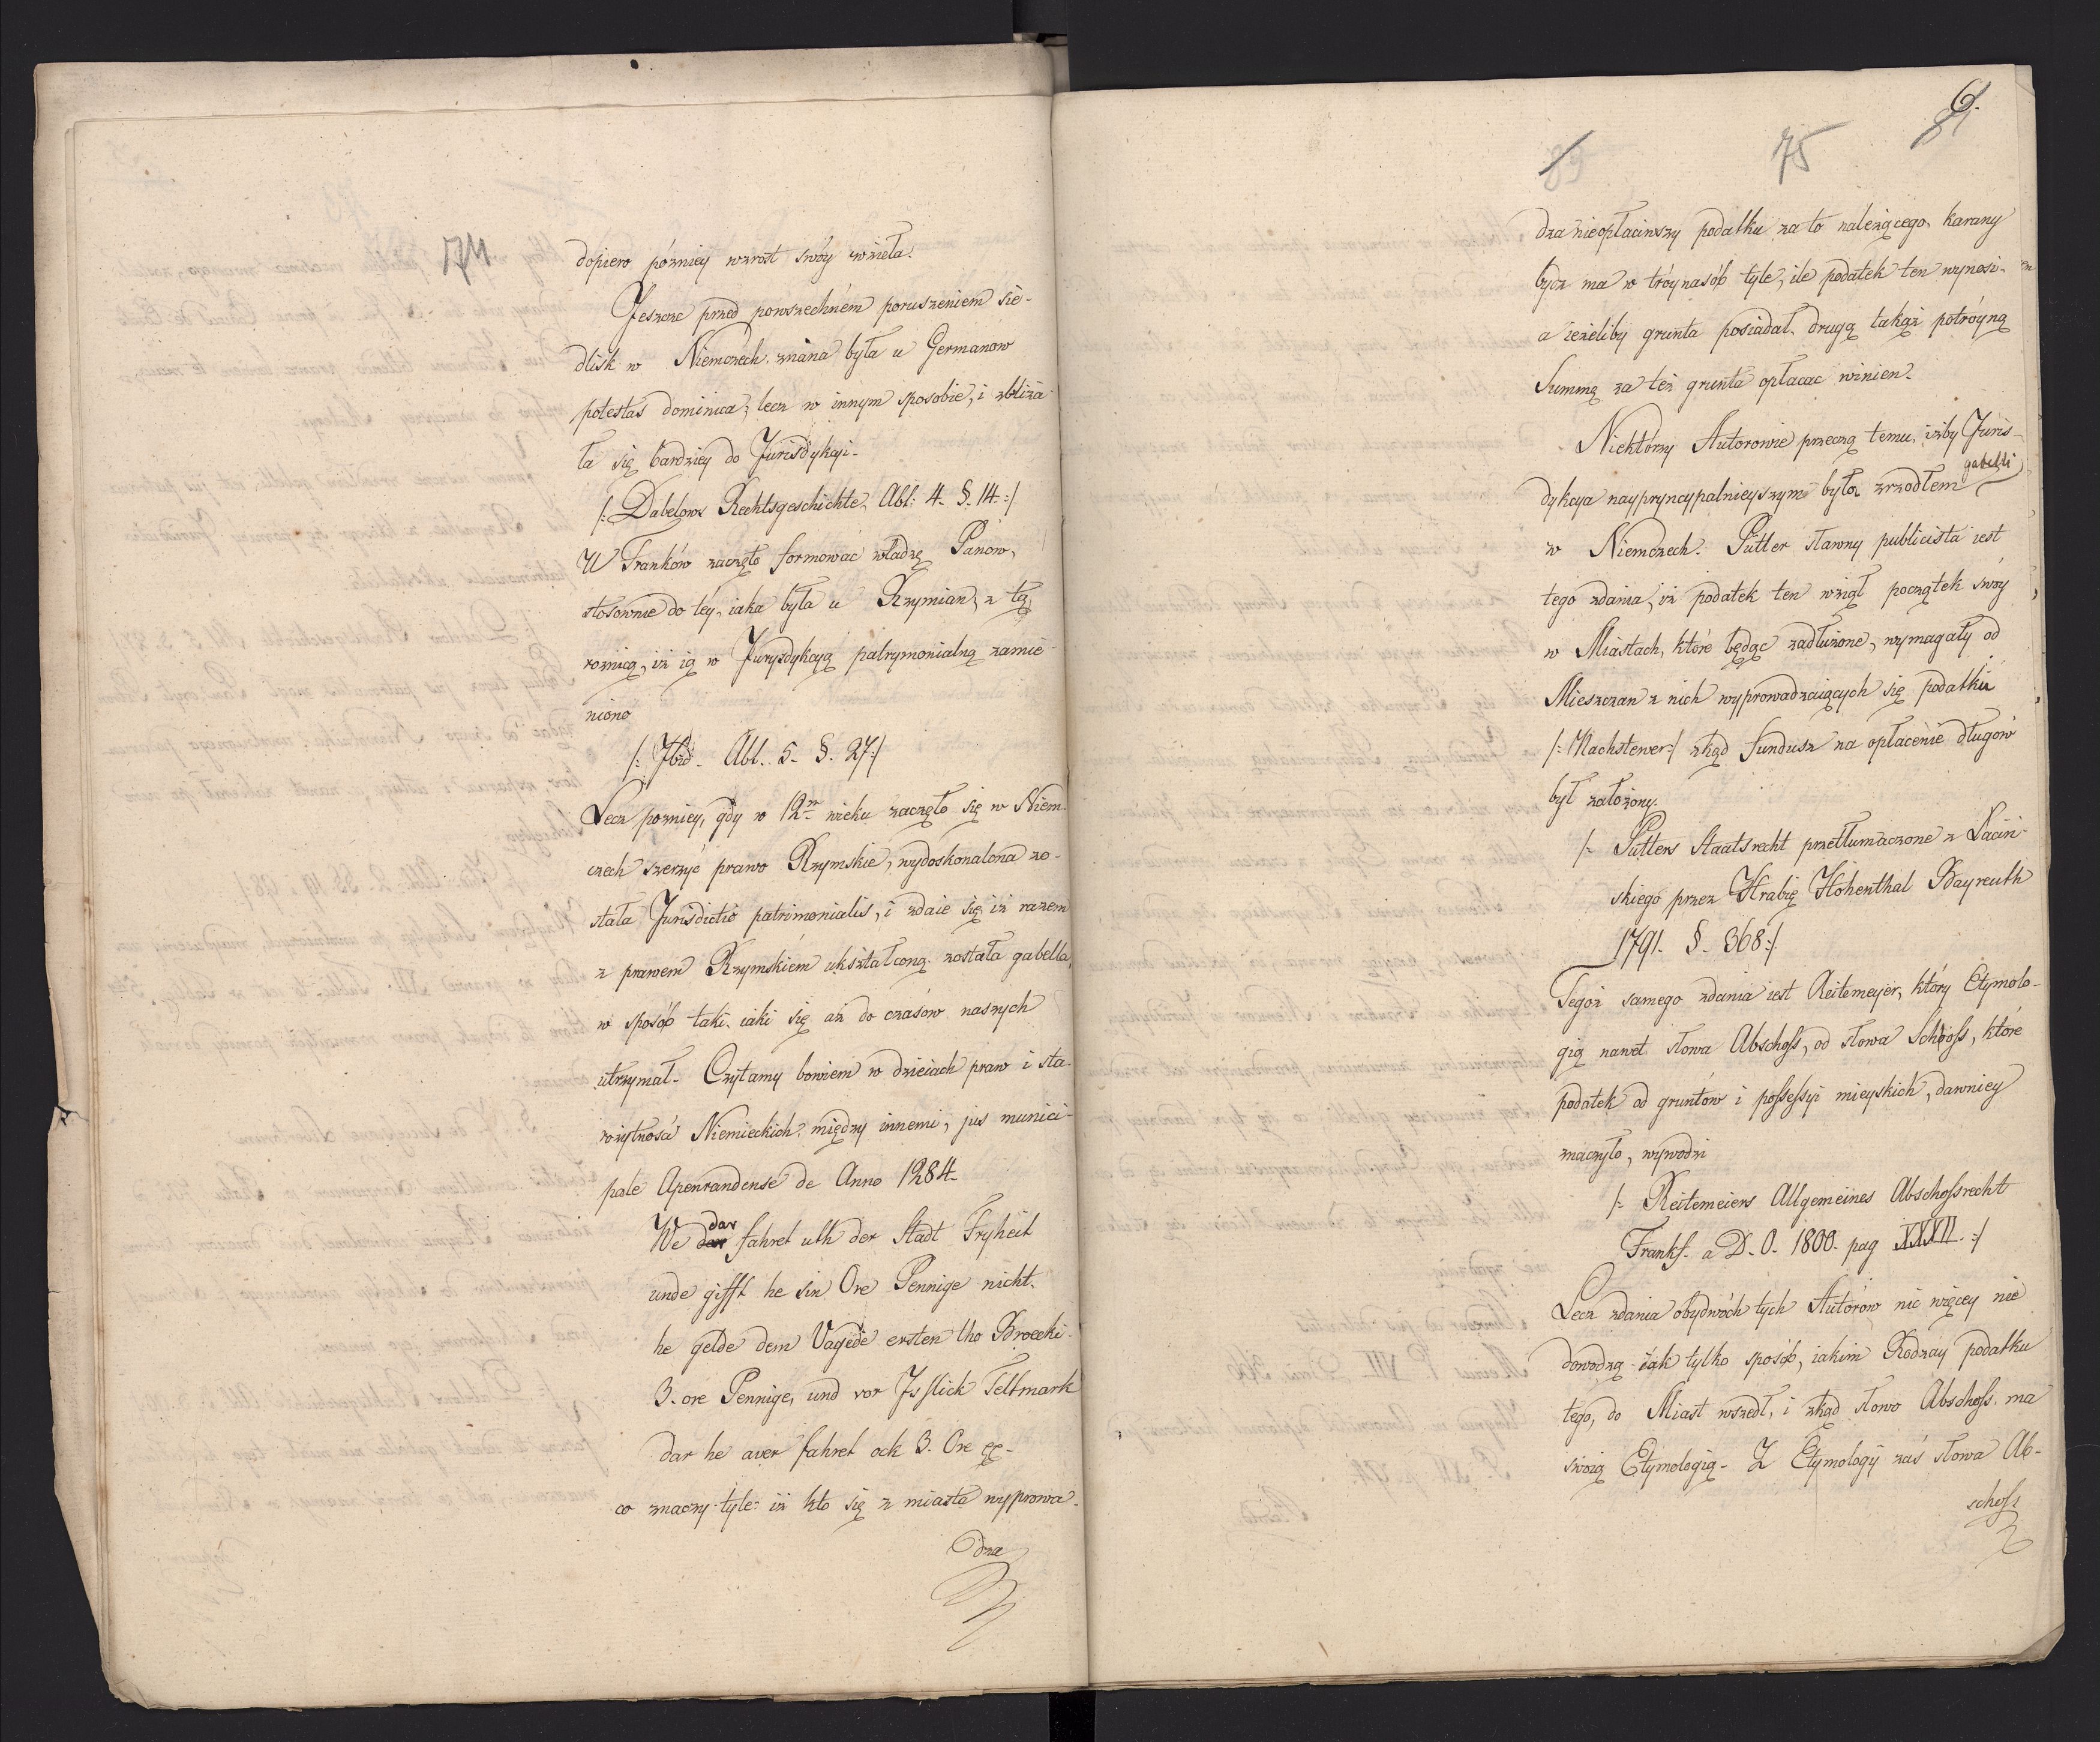 74
dopiero pózniey wzrost swóy wzieła.
Jeszcze przed powszechném poruszeniem sie-
dlisk w Niemczech znana była u Germanow
potestas dominica; lecz w innym sposobie, i zbliża-
ła się bardziey do Jurisdykcji.
/: Dabelows Rechtsgeschichte. Abt: 4. §. 14. :/
U Franków zaczęto formować władzę Panów,
stosownie do téy, iaka była u Rzymian, z tą
roznicą, iż ią w Juryzdykcyą patrymonialną zamie-
niono
/: Ibid. Abt. 5. §. 27:/
Lecz pozniey, gdy w 12m wieku zaczęło się w Niem-
czech szerzyć prawo Rzymskie, wydoskonalona zo-
stała Jurisdictio patrimonialis, i zdaie się iż razem
z prawem Rzymskiém ukształconą została gabella,
w sposób taki, iaki się aż do czasów naszych
utrzymał. Czytamy bowiem w dzieiach praw i sta-
rożytnosć Niemieckich, między innemi, jus munici-
pale Apenrandense de Anno 1284.
dar
We dar fahret uth der Stadt Fryheit
unde gifft he sin Ore Pennige nicht.
he gelde dem Vagede ersten tho Broecki.
3. ore Pennige, und vor Isslick Feltmark
dar he aver fahret ock 3. Ore
co znaczy tyle: iż kto się z miasta wyprowa-
dza
6.
75
dza nieopłaciwszy podatku za to należącego, karany
bydz ma w tróynasób tyle, ile podatek ten wynosi.
a ieżeliby grunta posiadał, drugą takąż potróyną
Summę za też grunta opłacac winien.
Niektorzy Autorowie przeczą temu, iżby Juris-
gabelli
dykcya naypryncypalnieyszym była zrzodłem
w Niemczech. Pütter sławny publicista iest
tego zdania, iż podatek ten wziął początek swóy
w Miastach, które będąc zadłużone, wymagały od
Mieszczan z nich wyprowadzaiących się podatku
/: Nachstewer :/ zkąd fundusz na opłacenie długów
był założony.
/: Pütters Staatsrecht przetłumaczone z Łaciń-
skiego przez Hrabię Hohenthal Bayreuth
1791. §. 368 :/.
Tegoż samego zdania iest Reitemeyer, który Etymolo-
gią nawet słowa Abschoss, od słowa Schoss, które
podatek od gruntów i possessyi mieyskich, dawniey
znaczyło, wywodzi
/: Reitemeiers Allgemeines Abschossrecht
Frankf. a D. O. 1800. pag XXXII. :/
Lecz zdania obydwóch tych Autorów nic więcey nie
dowodzą iak tylko sposób, iakim Rodzay podatku
tego, do Miast wszedł, i zkąd słowo Abschoss ma
swoię Etymologią. Z Etymologij zaś słowa Ab-
schoss